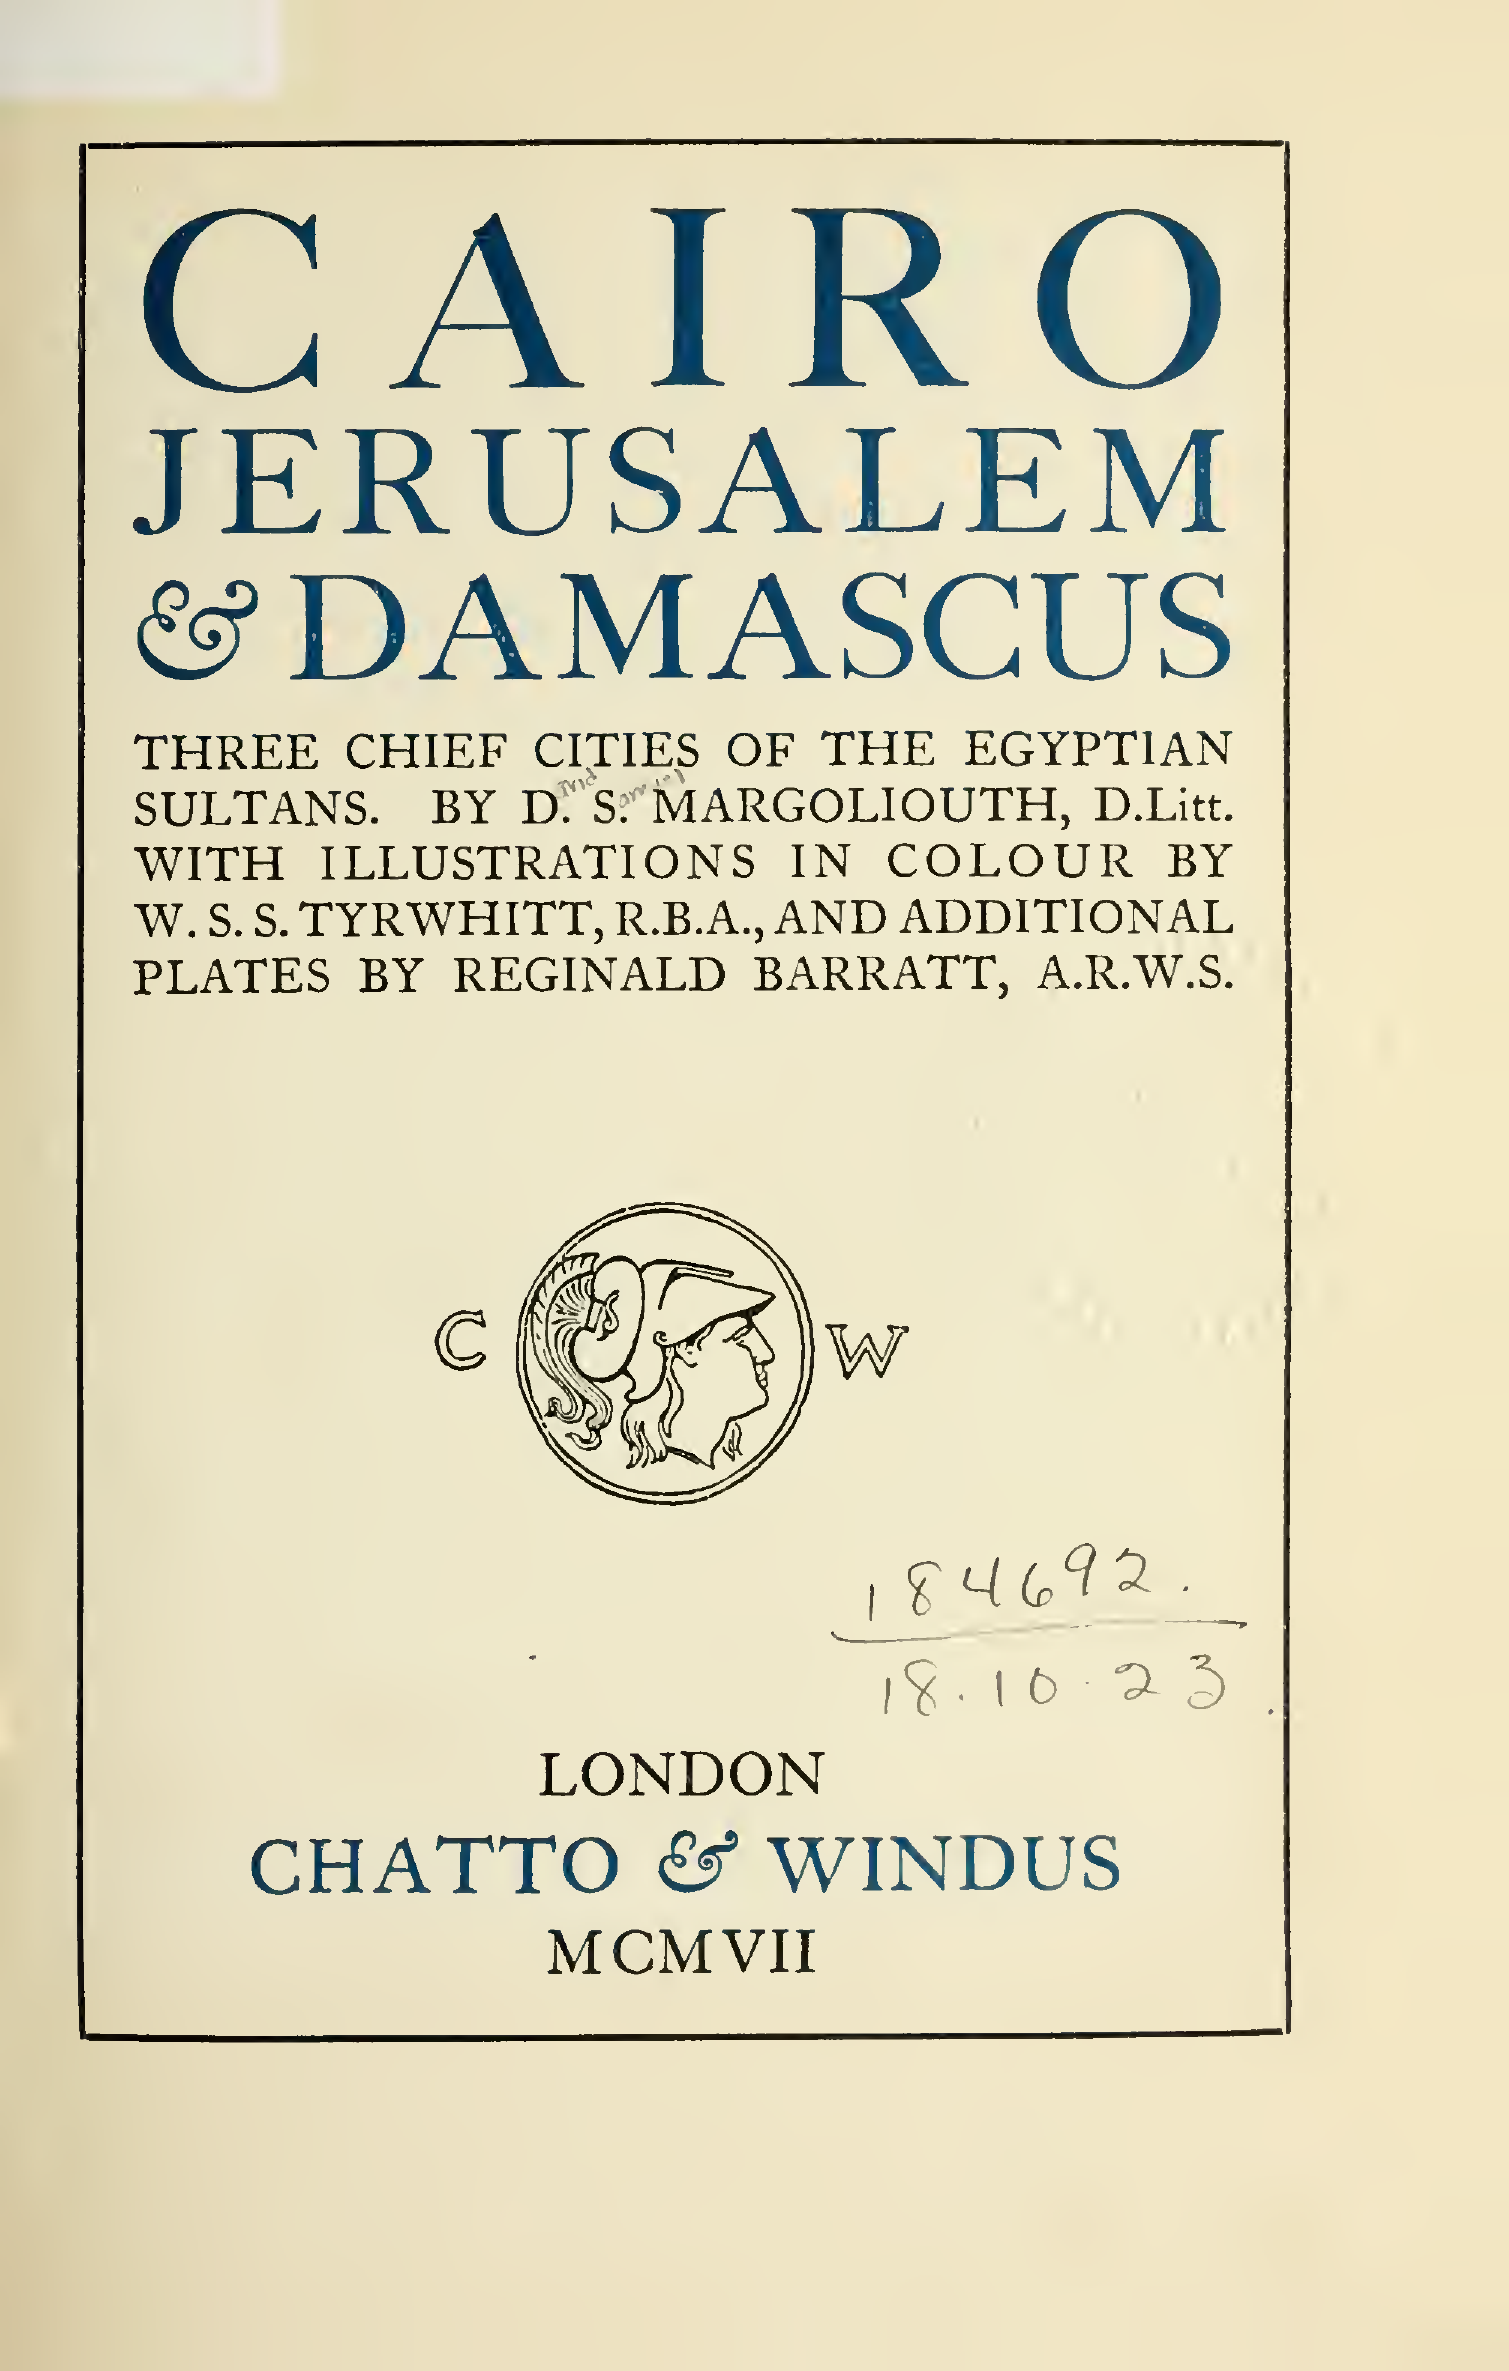 CAIRO
JERUSALEM
& DAMASCUS
THREE CHIEF CITIES OF THE EGYPTIAN
SULTANS. BY D. S. MARGOLIOUTH, D.Litt.
WITH ILLUSTRATIONS IN COLOUR BY
W. S. S. TYRWHITT, R.B.A., AND ADDITIONAL
PLATES BY REGINALD BARRATT, A.R.W.S.
C W
184692.
18.10.23.
LONDON
CHATTO & WINDUS
MCMVII